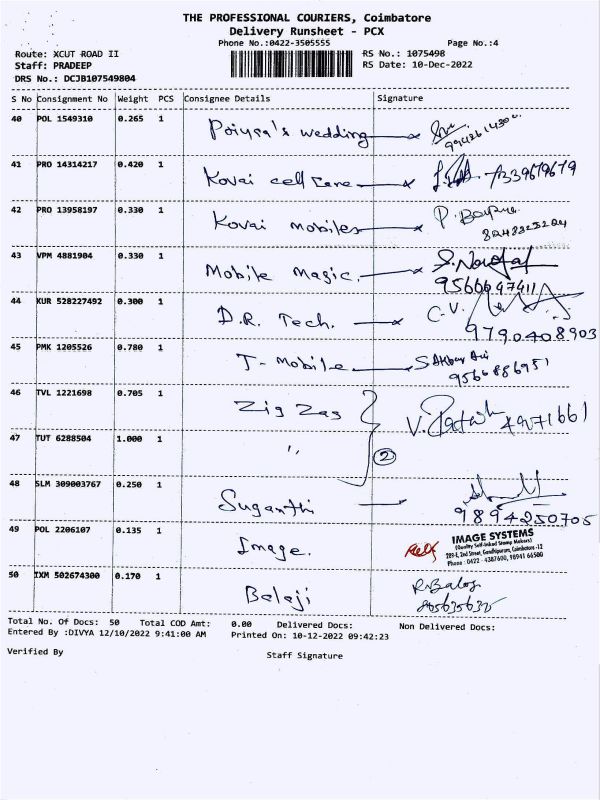 THE PROFESSIONAL COURIERS, Coimbatore
Delivery Runsheet - PCX
Phone No.:0422-3505555 Page No.:4
Route: XCUT ROAD II RS No.: 1075498
Staff: PRADEEP RS Date: 10-Dec-2022
DRS No.: DCJB107549804
S No Consignment No Weight PCS Consignee Details Signature
40 POL 1549310 0.265 1 Poiysa's wedding
41 PRO 14314217 0.420 1 Kovai cell care 7339679679
42 PRO 13958197 0.330 1 Kovai mobiles P.
43 VPM 4881904 0.330 1 Mobile Magic.
9566697411
44 KUR 528227492 0.300 1 D.R. Tech. C.V.
9790408903
45 PMK 1205526 0.780 1 T-mobile
9566886951
46 TVL 1221698 0.705 1 Zig Zag V. 4971661
47 TUT 6288504 1.000 1 " 2
48 SLM 309003767 0.250 1 Suganthi
9894250705
49 POL 2206107 0.135 1 Image.
IMAGE SYSTEMS
(Quality Self-Inked Stamp Makers)
289-E, 2nd Street, Gandhipuram, Coimbatore -12
Phone : 0422 - 4387600, 98941 66500
50 IXM 502674300 0.170 1 Balaji R.Balaji
Total No. Of Docs: 50 Total COD Amt: 0.00 Delivered Docs: Non Delivered Docs:
Entered By :DIVYA 12/10/2022 9:41:00 AM Printed On: 10-12-2022 09:42:23
Verified By Staff Signature